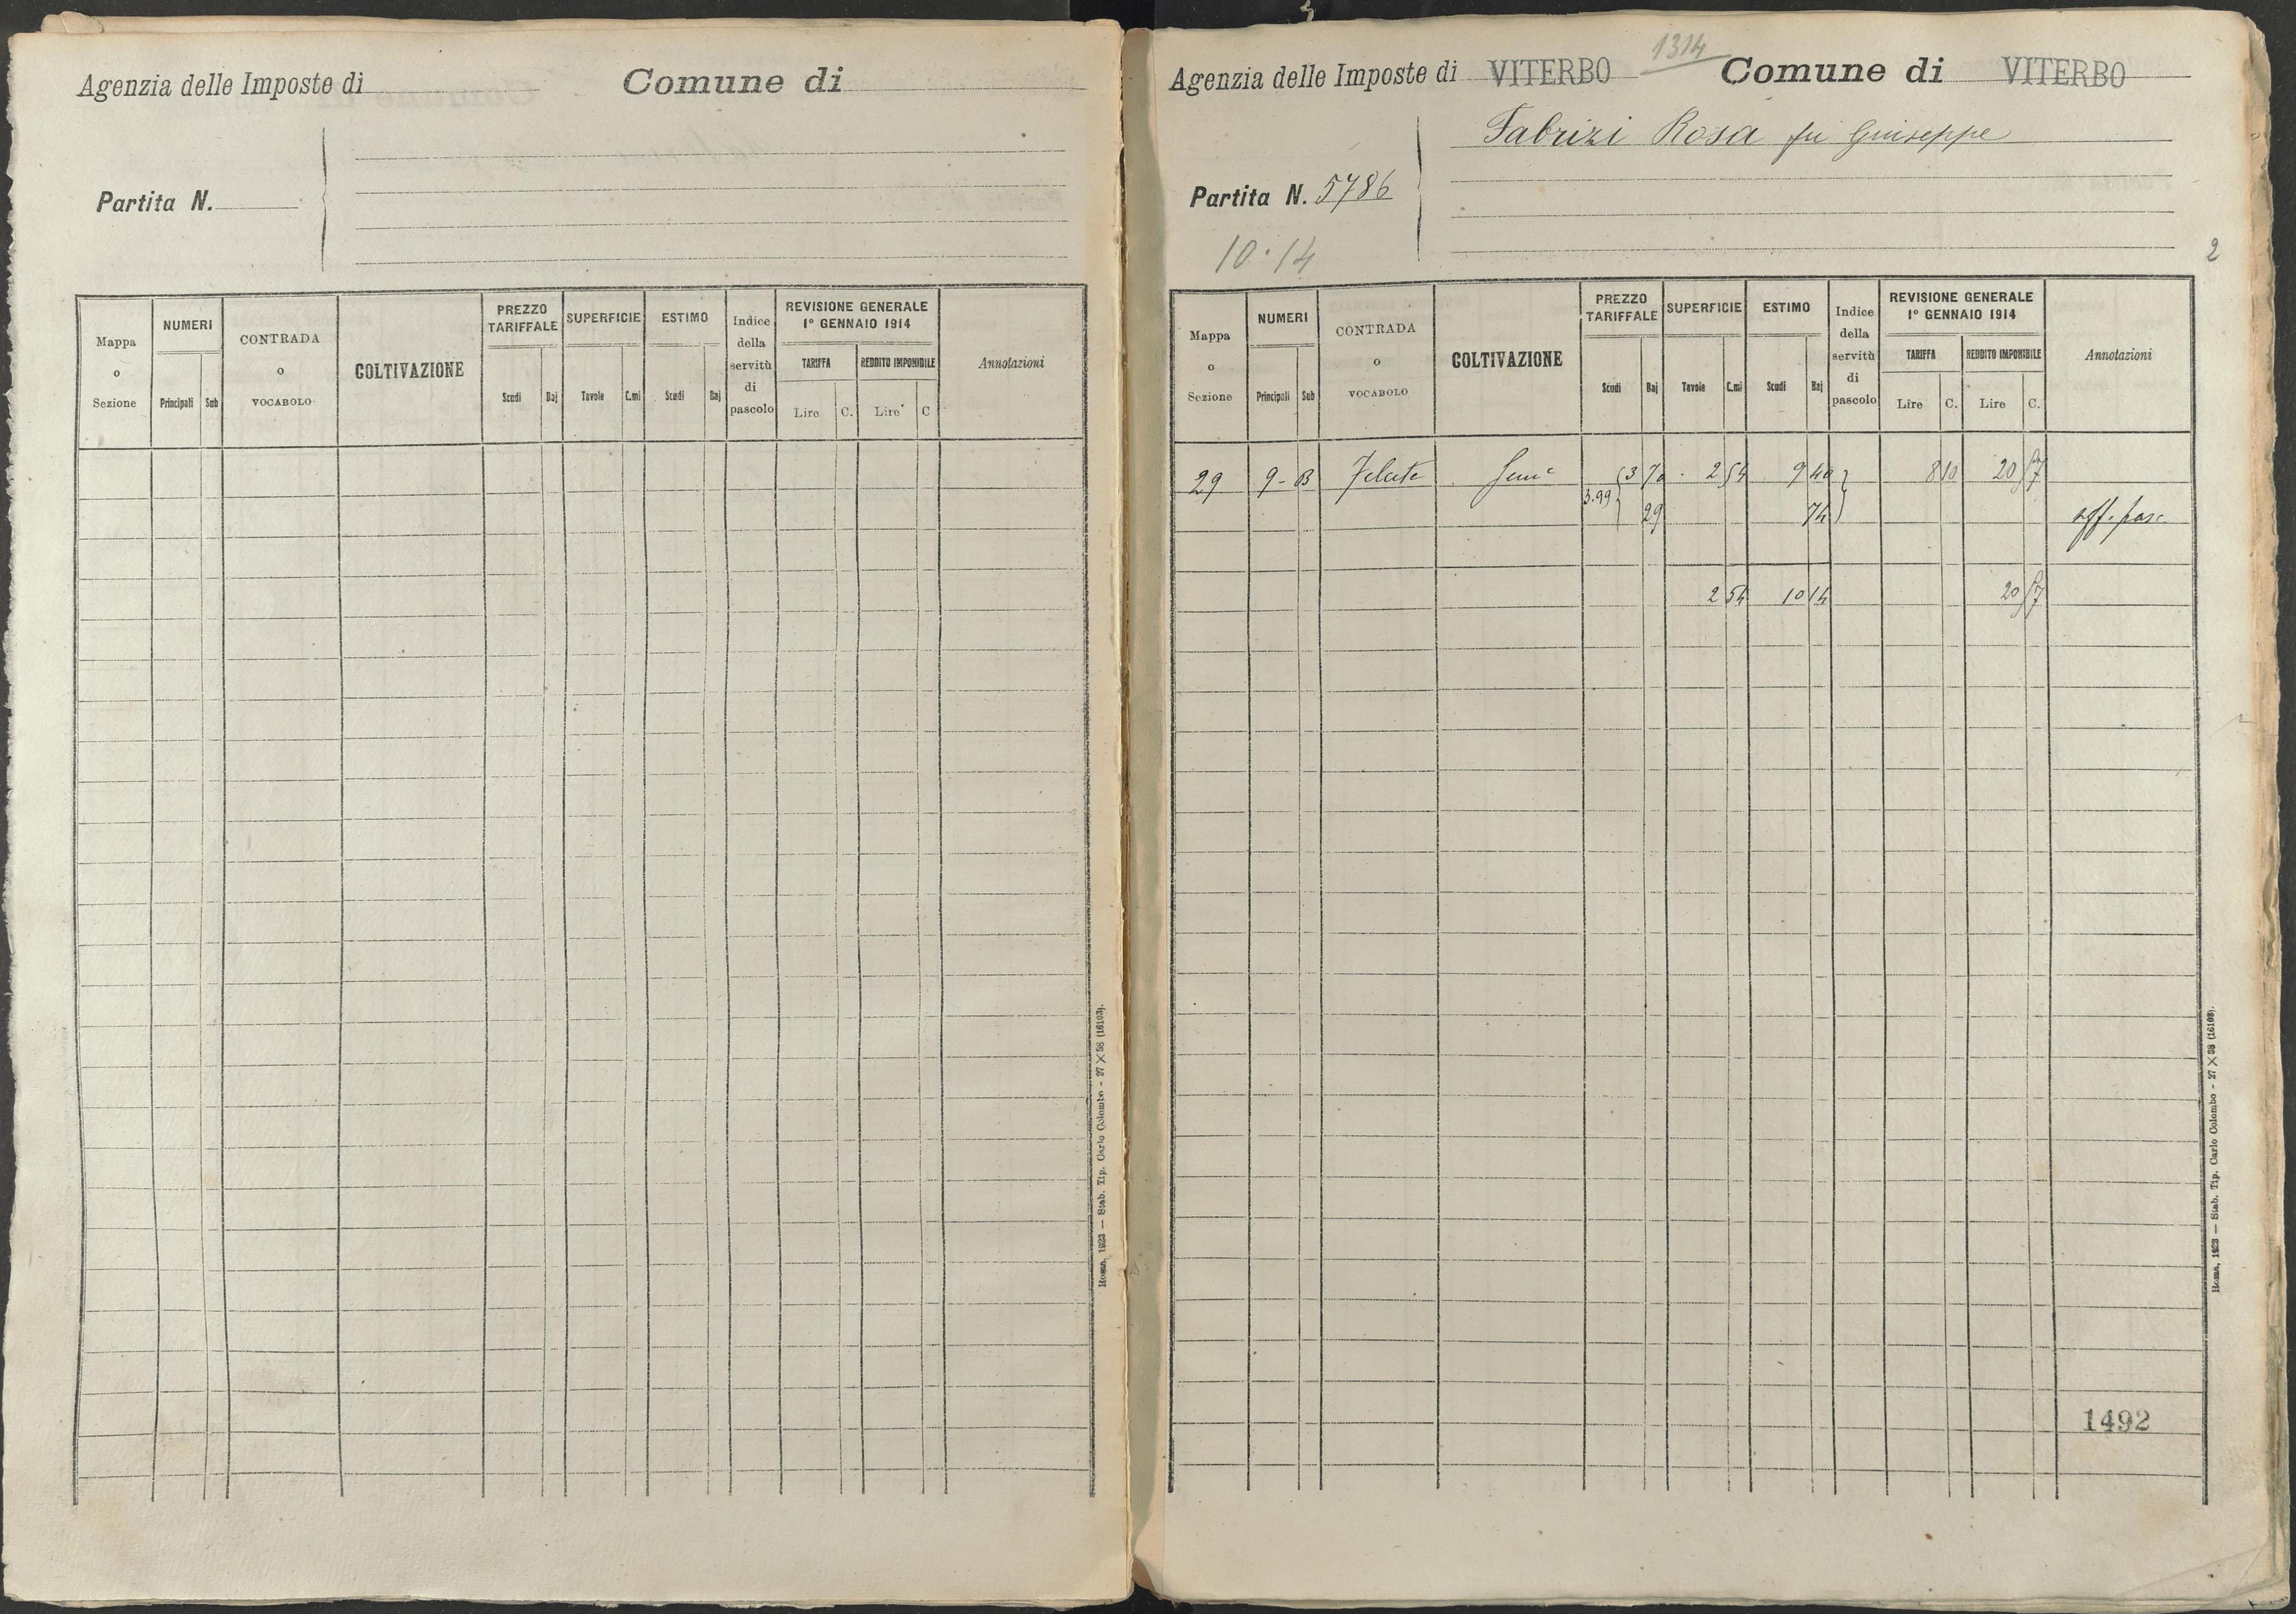 Agenzia delle Imposte di
Comune di
Partita N.
Mappa o Sezione
NUMERI
Principali
Sub
CONTRADA o VOCABOLO
COLTIVAZIONE
PREZZO TARIFFALE
Scudi
Baj
SUPERFICIE
Tavole
C.mi
ESTIMO
Scudi
Baj
Indice della servitù di pascolo
REVISIONE GENERALE
1° GENNAIO 1914
TARIFFA
REDDITO IMPONIBILE
Lire
C.
Lire
C
Annotazioni
Roma, 1923 — Stab. Tip. Carlo Colombo - 27 X 38 (16103).
1314
Agenzia delle Imposte di VITERBO
Comune di VITERBO
Fabrizi Rosa fu Giuseppe
Partita N. 5786
10.14
2
Mappa o Sezione
NUMERI
Principali
Sub
CONTRADA o VOCABOLO
COLTIVAZIONE
PREZZO TARIFFALE
Scudi
Baj
SUPERFICIE
Tavole
C.mi
ESTIMO
Scudi
Baj
Indice della servitù di pascolo
REVISIONE GENERALE
1° GENNAIO 1914
TARIFFA
REDDITO IMPONIBILE
Lire
C.
Lire
C.
Annotazioni
29 9 - B 3 70 2 54 9 40 8 10 20 57
3.99 29 74 aff. pasc
2 54 10 14 20 57
1492
Roma, 1923 — Stab. Tip. Carlo Colombo - 27 X 38 (16103).